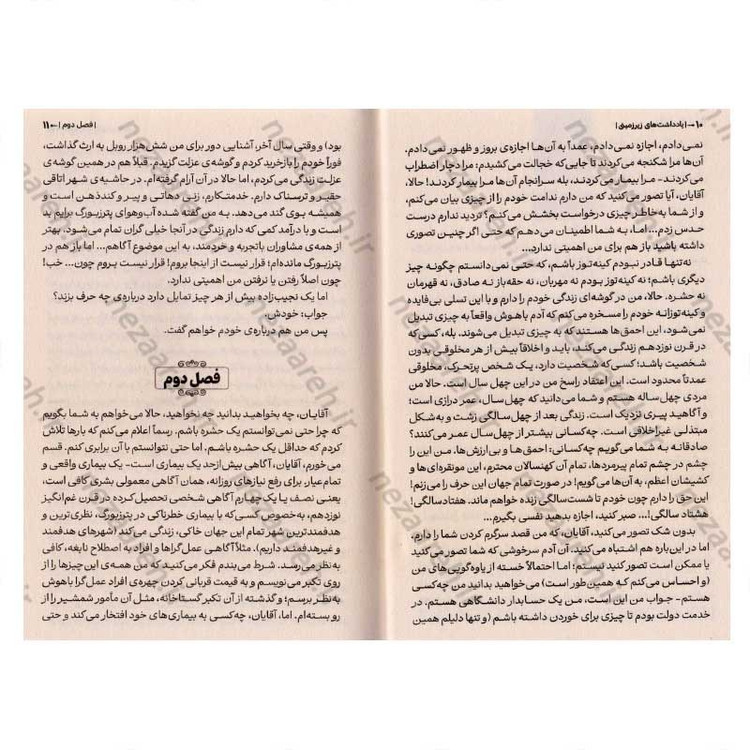 ۱۰ →| یادداشت‌های زیرزمینی |
نمی‌دادم، اجازه نمی‌دادم، عمداً به آن‌ها اجازه‌ی بروز و ظهور نمی‌دادم.
آن‌ها مرا شکنجه می‌کردند تا جایی که خجالت می‌کشیدم: مرا دچار اضطراب
می‌کردند- مرا بیمار می‌کردند، بله سرانجام آن‌ها مرا بیمار کردند! حالا،
آقایان، آیا تصور می‌کنید که من دارم ندامت خودم را از چیزی بیان می‌کنم،
و از شما به‌خاطر چیزی درخواست بخشش می‌کنم؟ تردید ندارم درست
حدس زدم... اما، به شما اطمینان می‌دهم که حتی اگر چنین تصوری
داشته باشید باز هم برای من اهمیتی ندارد...
نه‌تنها قادر نبودم کینه‌توز باشم، که حتی نمی‌دانستم چگونه چیز
دیگری باشم؛ نه کینه‌توز بودم نه مهربان، نه حقه‌باز نه صادق، نه قهرمان
نه حشره. حالا، من در گوشه‌ای زندگی خودم را دارم و با این تسلی بی‌فایده
و کینه‌توزانه خودم را مسخره می‌کنم که آدم باهوش واقعاً به چیزی تبدیل
نمی‌شود، این احمق‌ها هستند که به چیزی تبدیل می‌شوند. بله، کسی که
در قرن نوزدهم زندگی می‌کند، باید و اخلاقاً بیش از هر مخلوقی بدون
شخصیت باشد؛ کسی که شخصیت دارد، یک شخص پرتحرک، مخلوقی
عمدتاً محدود است. این اعتقاد راسخ من در این چهل سال است. حالا من
مردی چهل‌ساله هستم، و شما می‌دانید که چهل سال، عمر درازی است؛
و آگاهید پیری نزدیک است. زندگی بعد از چهل‌سالگی زشت و به‌شکل
مبتذلی غیراخلاقی است. چه‌کسانی بیشتر از چهل‌سال عمر می‌کنند؟
صادقانه به شما می‌گویم چه‌کسانی: احمق‌ها و بی‌ارزش‌ها. من این را
چشم در چشم تمام پیرمردها، تمام آن کهنسالان محترم، این مونقره‌ای‌ها و
کشیشان اعظم، به آن‌ها می‌گویم! در صورت تمام جهان این حرف را می‌زنم!
این حق را دارم چون خودم تا شصت‌سالگی زنده خواهم ماند. هفتادسالگی!
هشتاد سالگی!... صبر کنید، اجازه بدهید نفسی بگیرم...
بدون شک تصور می‌کنید، آقایان، که من قصد سرگرم کردن شما را دارم،
اما در این‌باره هم اشتباه می‌کنید. من آن آدم سرخوشی که شما تصور می‌کنید
یا ممکن است تصور کنید نیستم؛ اما احتمالاً خسته از یاوه‌گویی‌های من
(و احساس می‌کنم که همین‌طور است) می‌خواهید بدانید من چه‌کسی
هستم- جواب من این است، من یک حسابدار دانشگاهی هستم. در
خدمت دولت بودم تا چیزی برای خوردن داشته باشم (و تنها دلیلم همین
| فصل دوم |← ۱۱
بود) و وقتی سال آخر، آشنایی دور برای من شش‌هزار روبل به ارث گذاشت،
فوراً خودم را بازخرید کردم و گوشه‌ی عزلت گزیدم. قبلاً هم در همین گوشه‌ی
عزلت زندگی می‌کردم، اما حالا در آن آرام گرفته‌ام. در حاشیه‌ی شهر اتاقی
حقیر و ترسناک دارم. خدمتکارم، زنی دهاتی و پیر و کندذهن است و
همیشه بوی گند می‌دهد. به من گفته شده آب‌وهوای پترزبورگ برایم بد
است و با درآمد کمی که دارم زندگی در آنجا خیلی گران تمام می‌شود. بهتر
از همه‌ی مشاوران باتجربه و خردمند، به این موضوع آگاهم... اما باز هم در
پترزبورگ مانده‌ام؛ قرار نیست از اینجا بروم! قرار نیست بروم چون... خب!
چون اصلاً رفتن یا نرفتن من اهمیتی ندارد.
اما یک نجیب‌زاده بیش از هر چیز تمایل دارد درباره‌ی چه حرف بزند؟
جواب: خودش.
پس من هم درباره‌ی خودم خواهم گفت.
فصل دوم
آقایان، چه بخواهید بدانید چه نخواهید، حالا می‌خواهم به شما بگویم
که چرا حتی نمی‌توانستم یک حشره باشم. رسماً اعلام می‌کنم که بارها تلاش
کردم که حداقل یک حشره باشم. اما حتی نتوانستم با آن برابری کنم. قسم
می‌خورم، آقایان، آگاهی بیش‌ازحد یک بیماری است- یک بیماری واقعی و
تمام‌عیار. برای رفع نیازهای روزانه، همان آگاهی معمولی بشری کافی است،
یعنی نصف یا یک‌چهارم آگاهی شخصی تحصیل‌کرده در قرن غم‌انگیز
نوزدهم، به‌خصوص کسی‌که با بیماری خطرناکی در پترزبورگ، نظری‌ترین و
هدفمندترین شهر تمام این جهان خاکی، زندگی می‌کند (شهرهای هدفمند
و غیرهدفمند داریم). مثلاً آگاهی عمل‌گراها و افراد به اصطلاح نابغه، کافی
به‌نظر می‌رسد. شرط می‌بندم فکر می‌کنید که من همه‌ی این چیزها را از
روی تکبر می‌نویسم و به قیمت قربانی کردن چهره‌ی افراد عمل‌گرا باهوش
به‌نظر برسم؛ و گذشته از آن تکبر گستاخانه، مثل آن مأمور شمشیر را از
رو بسته‌ام. اما، آقایان، چه‌کسی به بیماری‌های خود افتخار می‌کند و حتی
nezaareh.ir